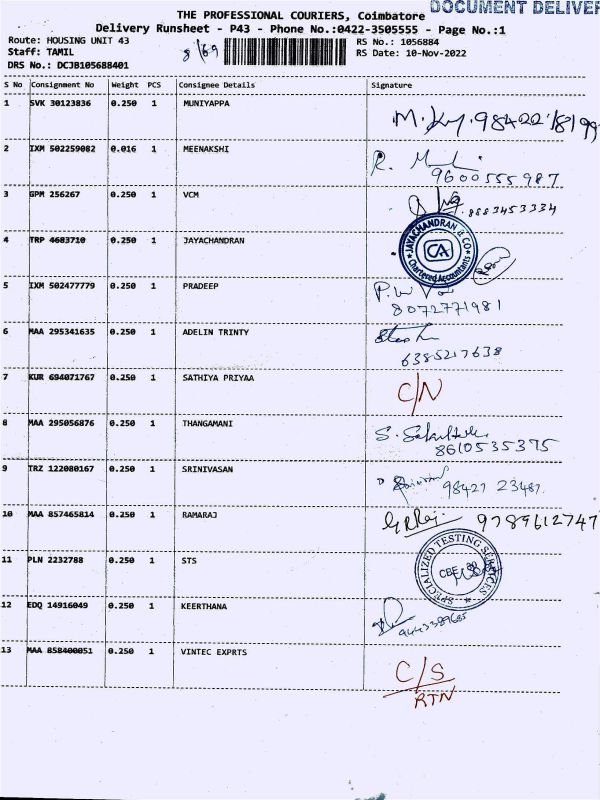 DOCUMENT DELIVER
THE PROFESSIONAL COURIERS, Coimbatore
Delivery Runsheet - P43 - Phone No.:0422-3505555 - Page No.:1
Route: HOUSING UNIT 43 RS No.: 1056884
Staff: TAMIL 8/69 RS Date: 10-Nov-2022
DRS No.: DCJB105688401
S No Consignment No Weight PCS Consignee Details Signature
1 SVK 30123836 0.250 1 MUNIYAPPA
2 IXM 502259082 0.016 1 MEENAKSHI
9600555987
3 GPM 256267 0.250 1 VCM
8883453334
4 TRP 4683710 0.250 1 JAYACHANDRAN JAYACHANDRAN & CO CA Chartered Accountants
5 IXM 502477779 0.250 1 PRADEEP
8072771981
6 MAA 295341635 0.250 1 ADELIN TRINTY
6385217638
7 KUR 694071767 0.250 1 SATHIYA PRIYAA C/N
8 MAA 295056876 0.250 1 THANGAMANI
8610535375
9 TRZ 122080167 0.250 1 SRINIVASAN
98427 23487
10 MAA 857465814 0.250 1 RAMARAJ 9789612747
11 PLN 2232788 0.250 1 STS SPECIALIZED TESTING SERVICES CBE
12 EDQ 14916049 0.250 1 KEERTHANA
13 MAA 858400051 0.250 1 VINTEC EXPRTS C/S
RTN